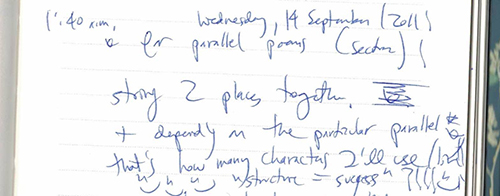 1:40 a.m. Wednesday, 14 September (2011)
for parallel poems (section)
string 2 places together.
+ depending on the particular parallel
that's how many characters I'll use
structure = success" ?!!!